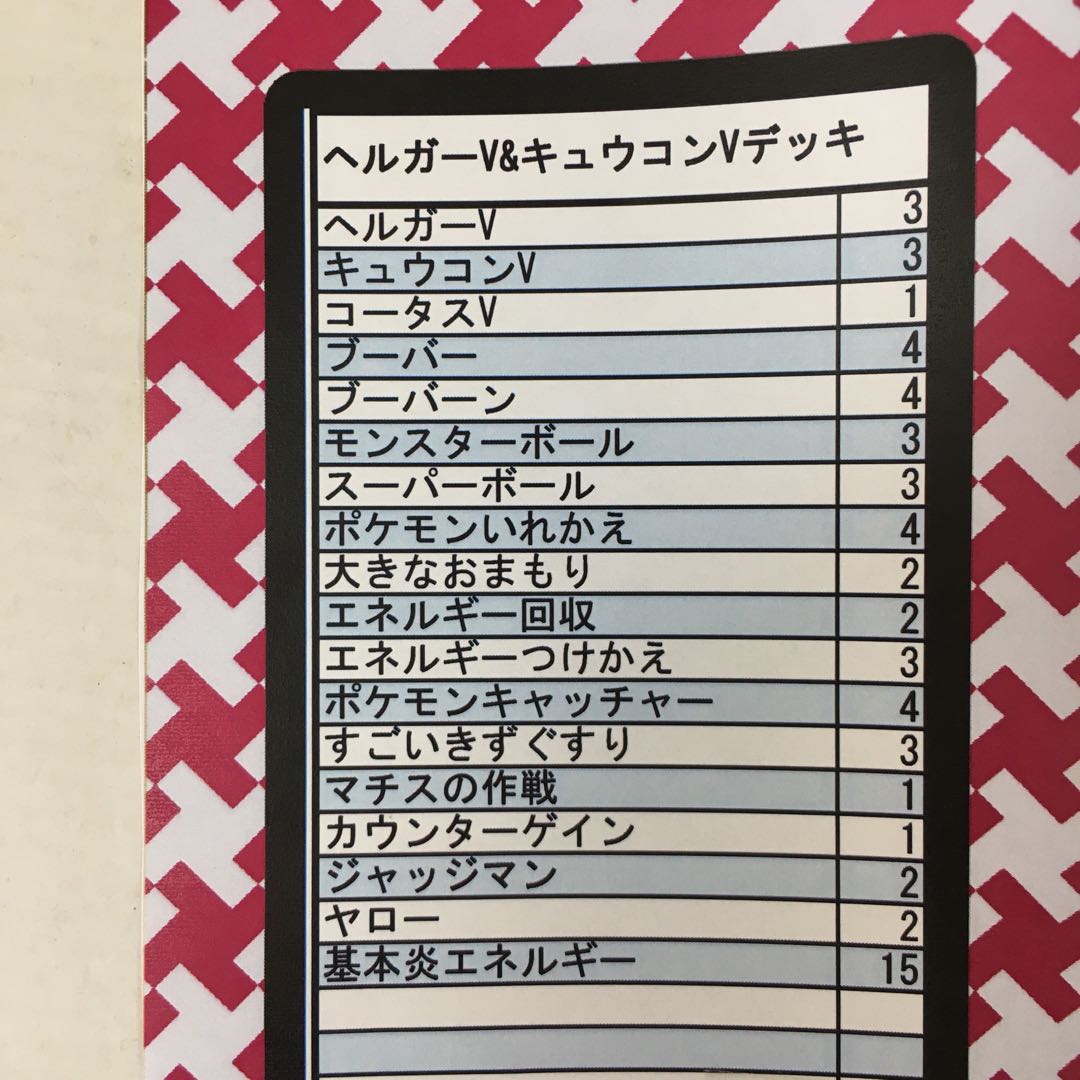 ヘルガーV&キュウコンVデッキ
ヘルガーV 3
キュウコンV 3
コータスV 1
ブーバー 4
ブーバーン 4
モンスターボール 3
スーパーボール 3
ポケモンいれかえ 4
大きなおまもり 2
エネルギー回収 2
エネルギーつけかえ 3
ポケモンキャッチャー 4
すごいきずぐすり 3
マチスの作戦 1
カウンターゲイン 1
ジャッジマン 2
ヤロー 2
基本炎エネルギー 15